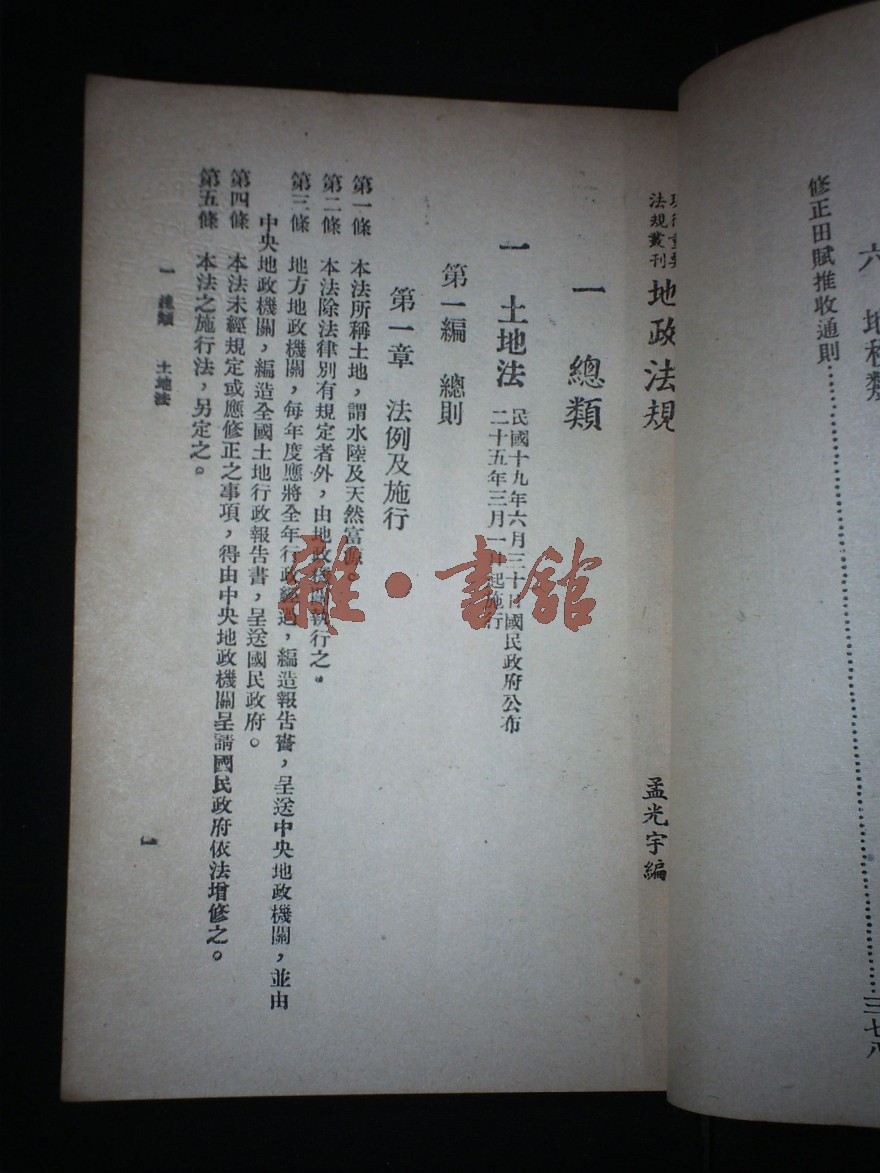 六　地税類
修正田賦推收通則……三七八
現行重要
法規叢刊
地政法規
孟光宇編
一　總類
一　土地法
民國十九年六月三十日國民政府公布
二十五年三月一日起施行
第一編　總則
第一章　法例及施行
第一條　本法所稱土地，謂水陸及天然富源。
第二條　本法除法律別有規定者外，由地政機關執行之。
第三條　地方地政機關，每年度應將全年行政經過，編造報告書，呈送中央地政機關，並由
中央地政機關，編造全國土地行政報告書，呈送國民政府。
第四條　本法未經規定或應修正之事項，得由中央地政機關呈請國民政府依法增修之。
第五條　本法之施行法，另定之。
一　總類　土地法
一
雜·書館